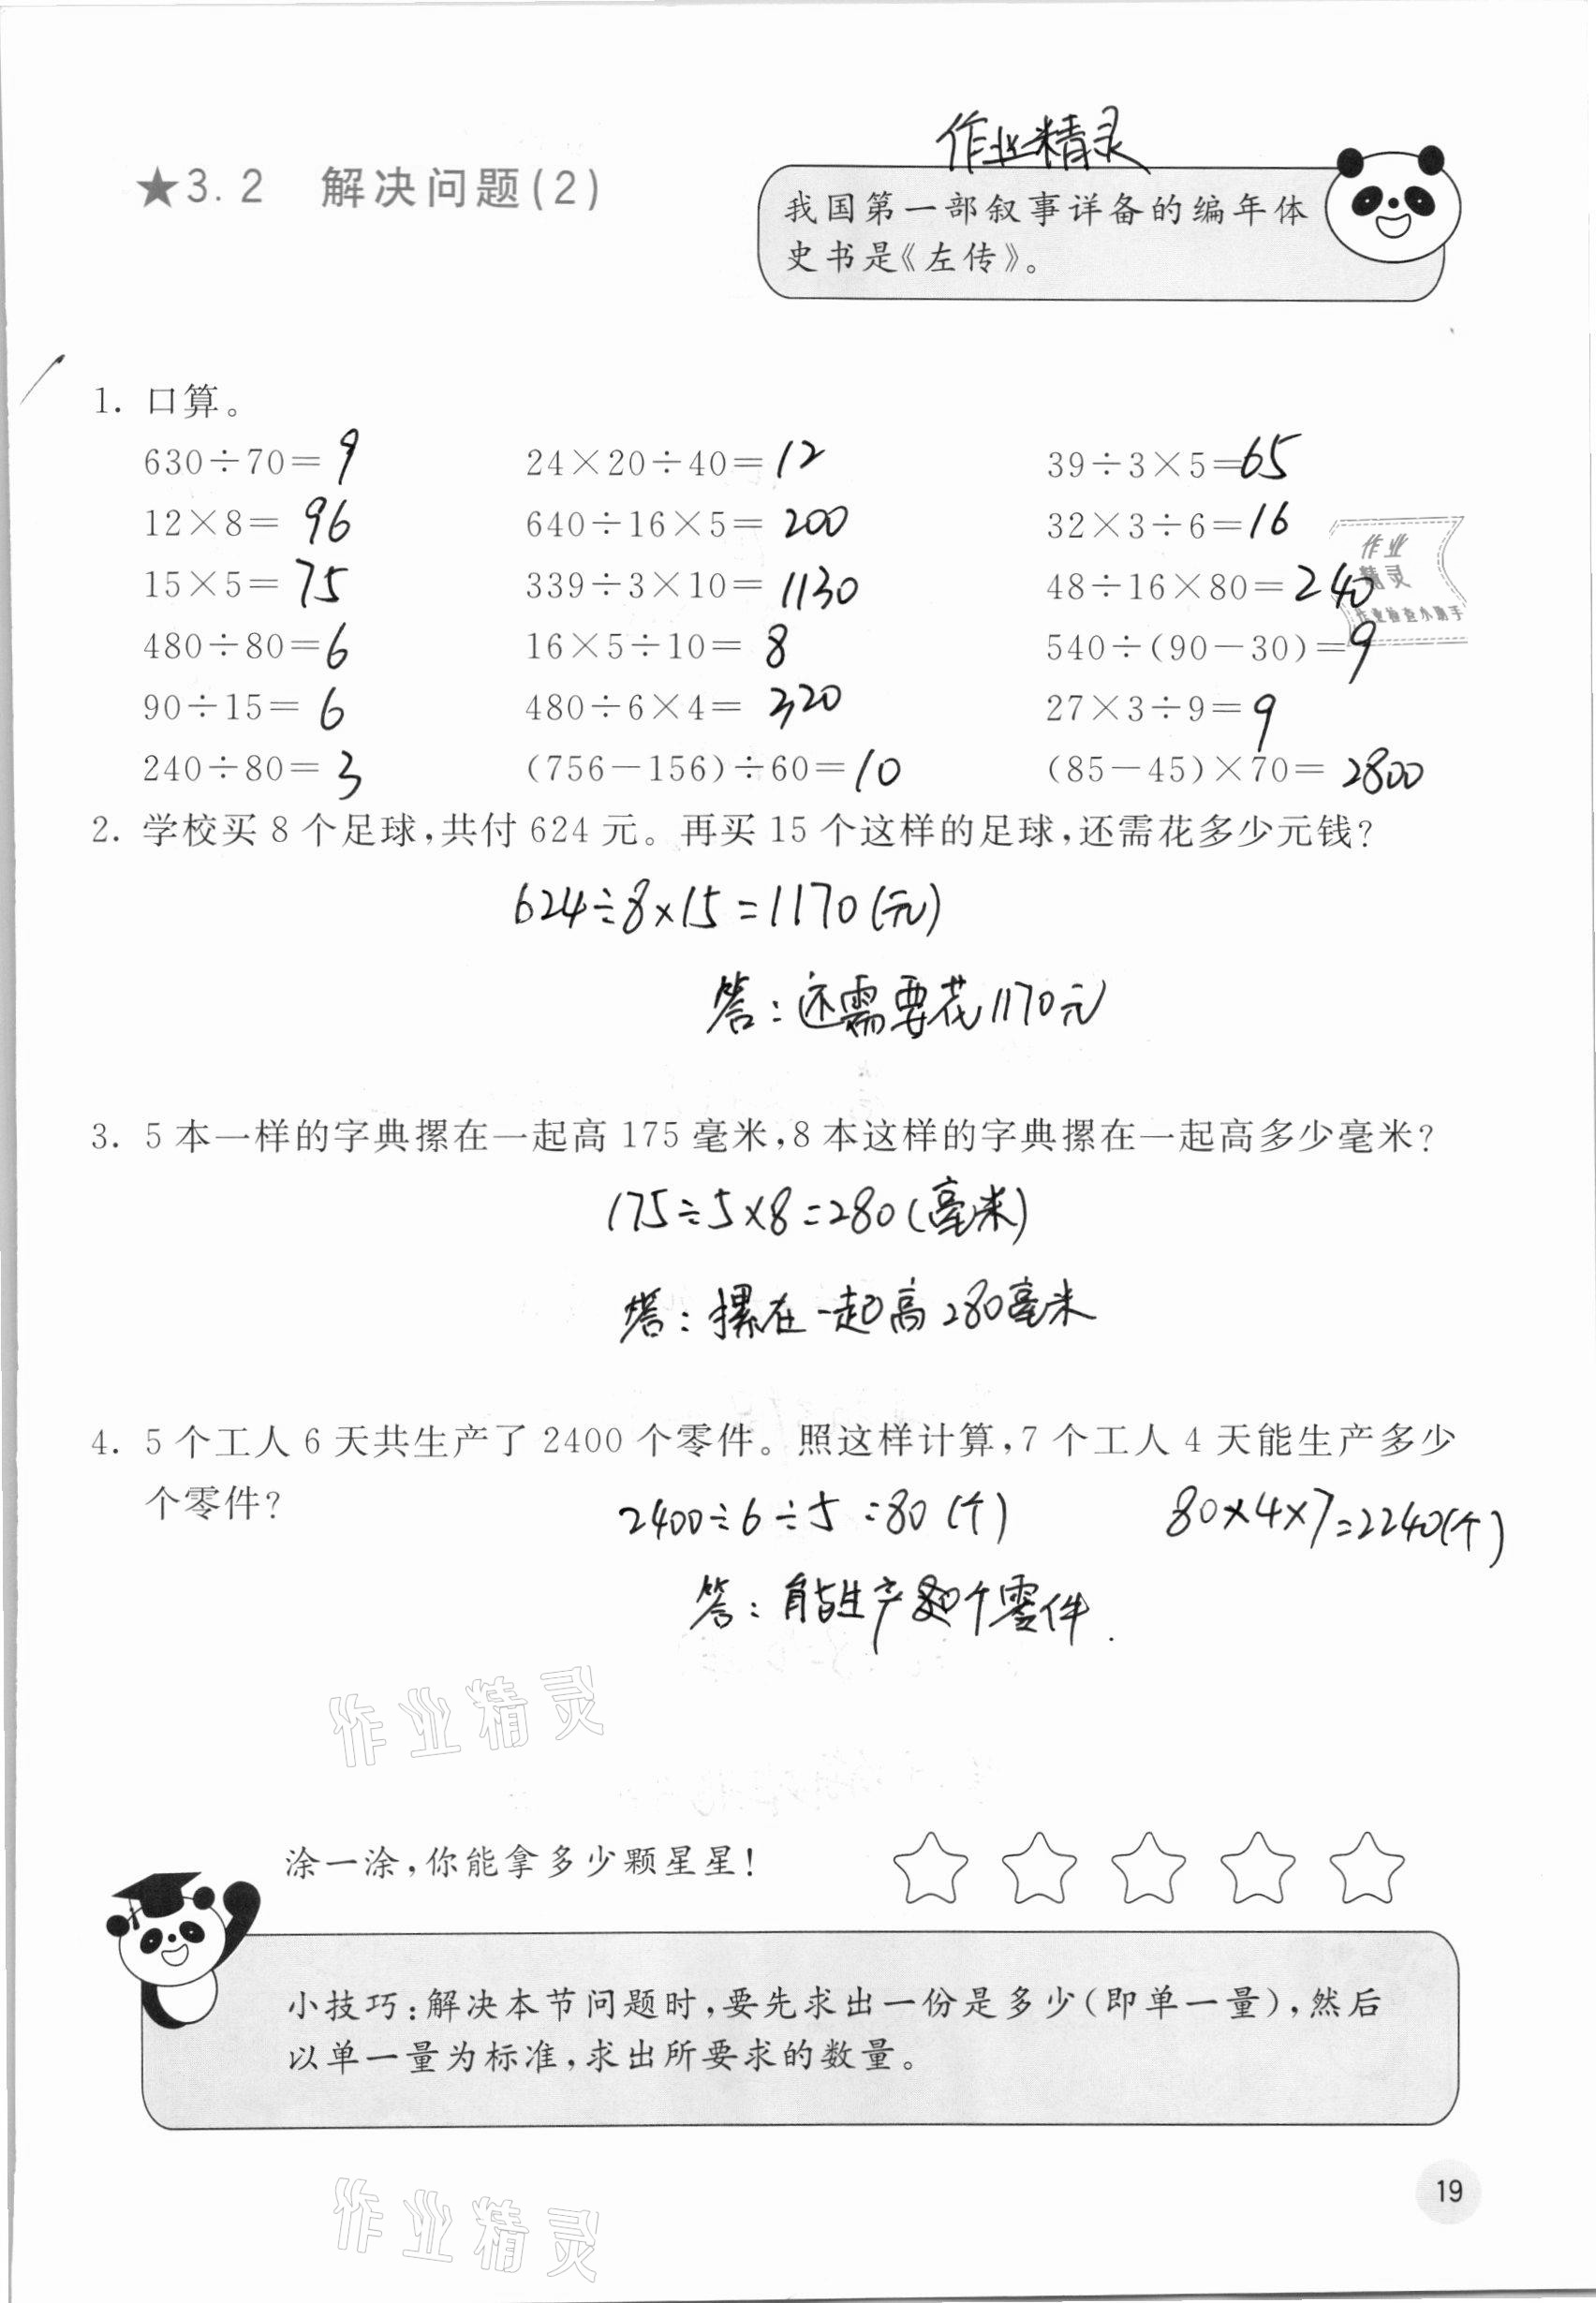 作业精灵
★3.2 解决问题(2)
我国第一部叙事详备的编年体
史书是《左传》。
1. 口算。
630÷70=9 24×20÷40=12 39÷3×5=65
12×8=96 640÷16×5=200 32×3÷6=16
15×5=75 339÷3×10=1130 48÷16×80=240
480÷80=6 16×5÷10=8 540÷(90-30)=9
90÷15=6 480÷6×4=320 27×3÷9=9
240÷80=3 (756-156)÷60=10 (85-45)×70=2800
作业
精灵
作业检查小助手
2. 学校买8个足球,共付624元。再买15个这样的足球,还需花多少元钱?
624÷8×15=1170(元)
答:还需要花1170元
3. 5本一样的字典摞在一起高175毫米,8本这样的字典摞在一起高多少毫米?
175÷5×8=280(毫米)
答:摞在一起高280毫米
4. 5个工人6天共生产了2400个零件。照这样计算,7个工人4天能生产多少
个零件?
2400÷6÷5=80(个) 80×4×7=2240(个)
答:能生产 个零件.
作业精灵
涂一涂,你能拿多少颗星星!
小技巧:解决本节问题时,要先求出一份是多少(即单一量),然后
以单一量为标准,求出所要求的数量。
19
作业精灵